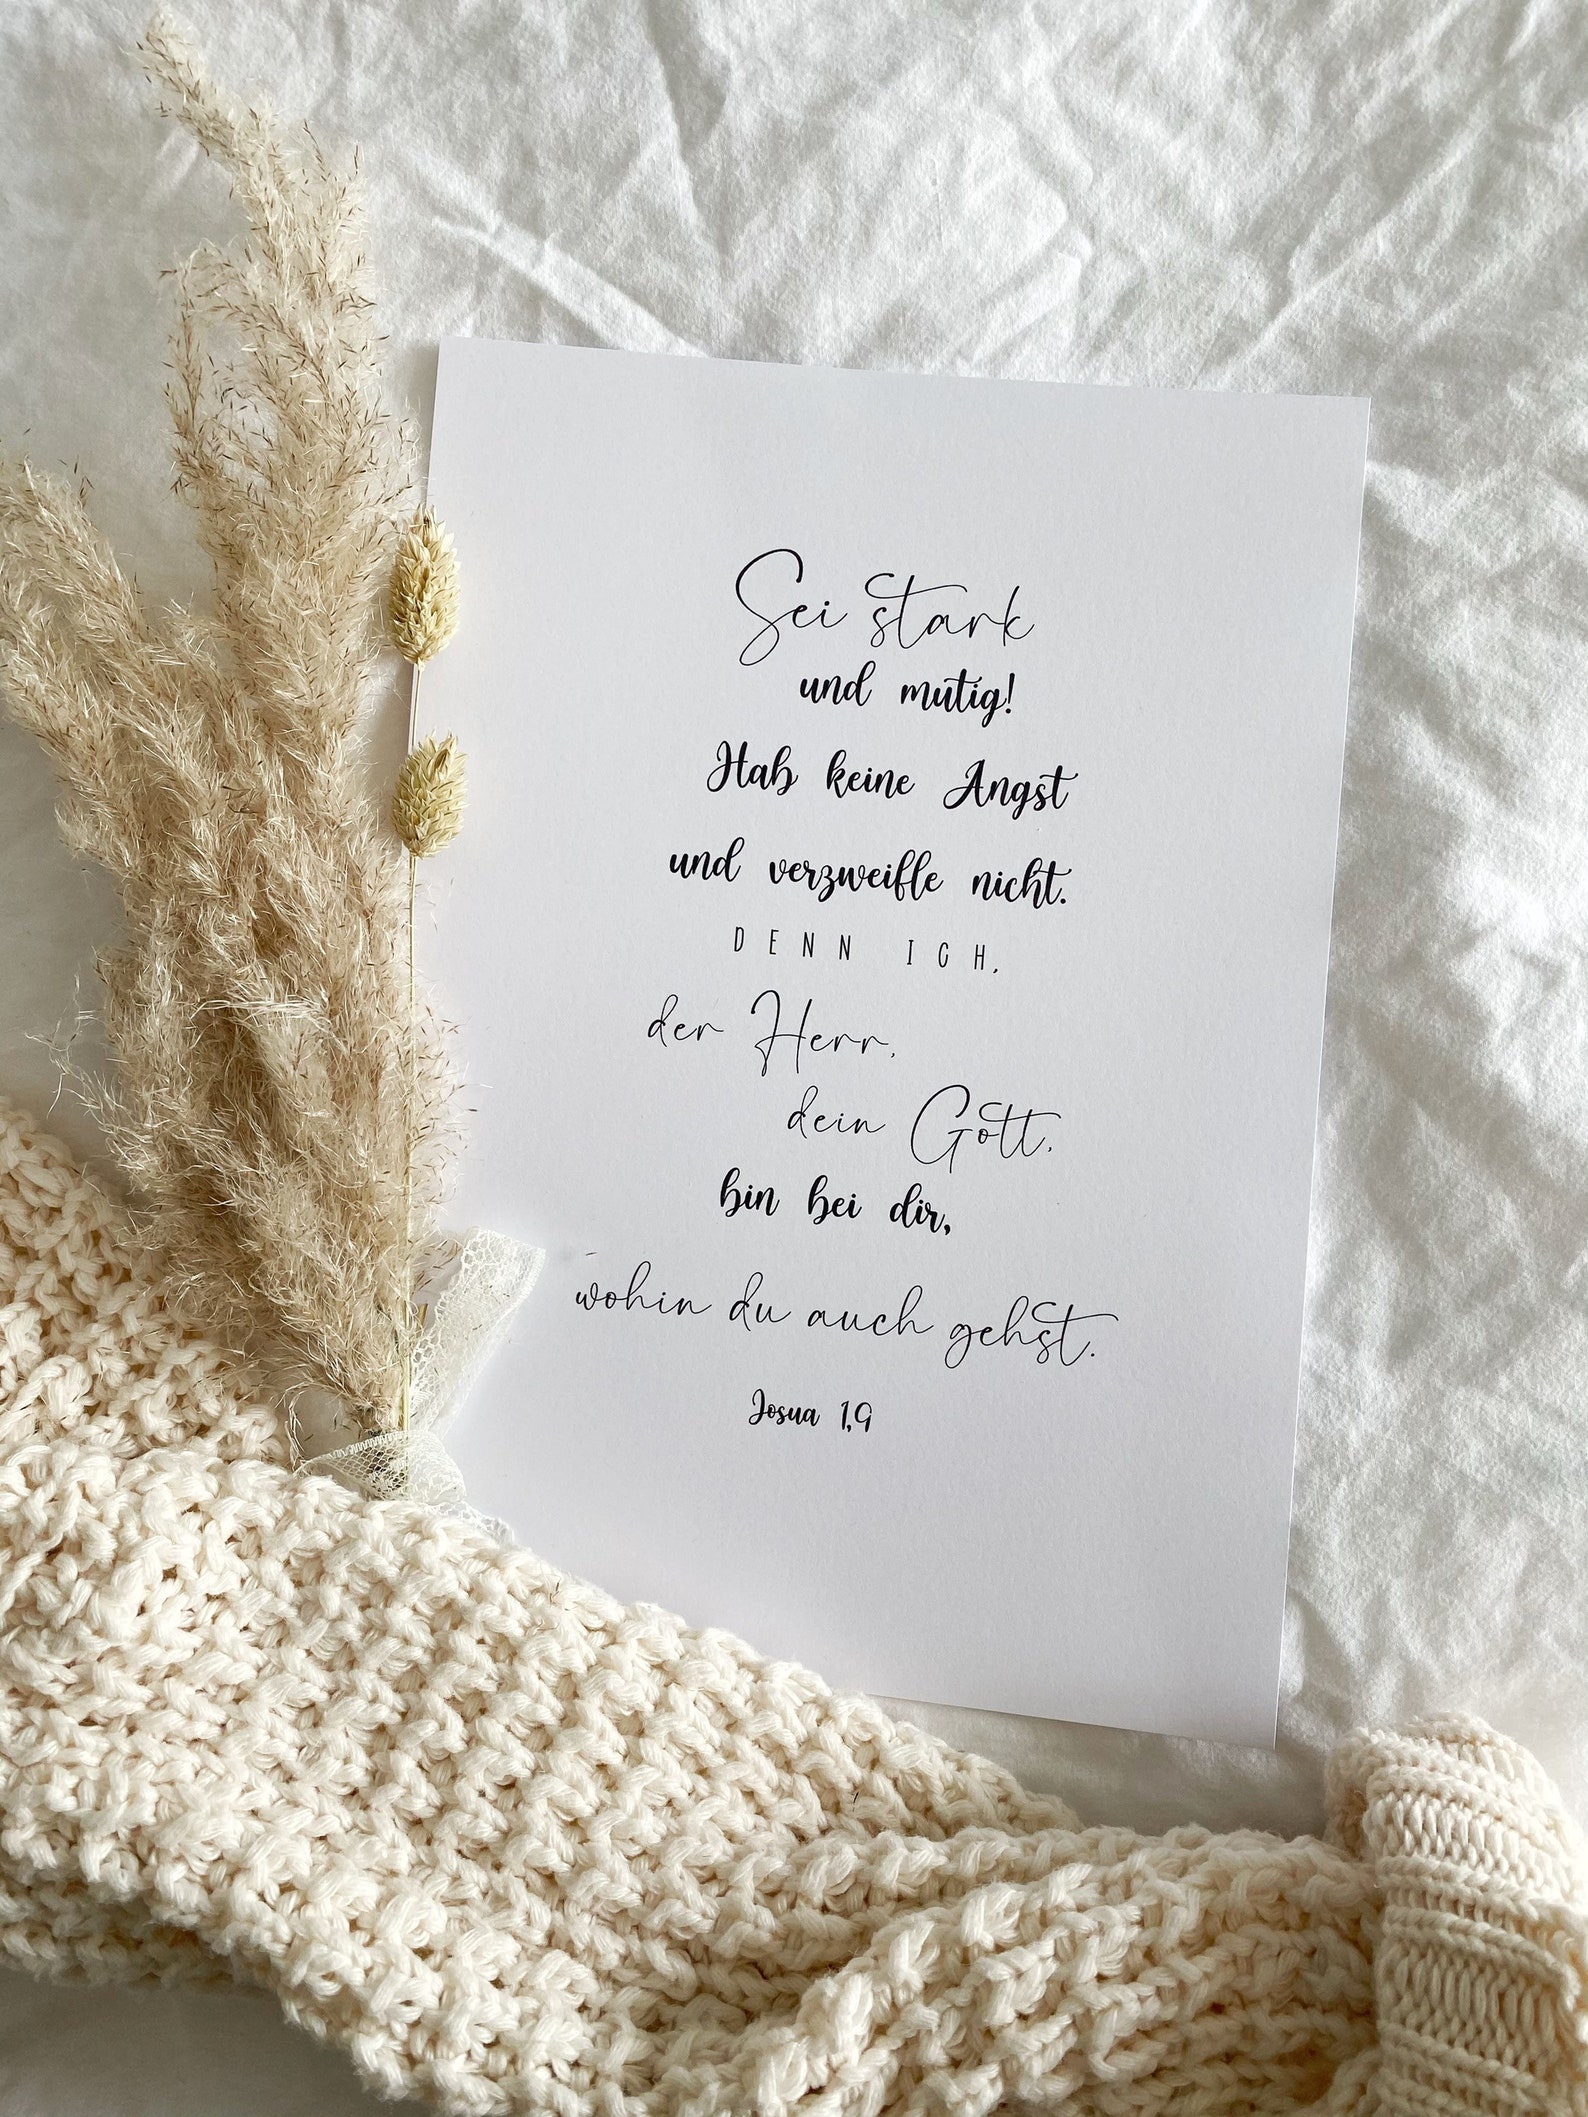 Sei stark
und mutig!
Hab keine Angst
und verzweifle nicht.
DENN ICH,
der Herr,
dein Gott,
bin bei dir,
wohin du auch gehst.
Josua 1,9